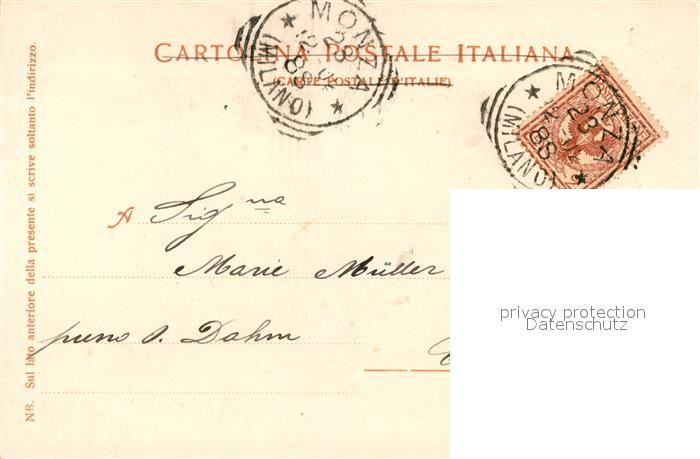 CARTOLINA POSTALE ITALIANA
(CARTE POSTALE D'ITALIE)
MONZA
(MILANO)
23
MONZA
(MILANO)
23
A Signa
Marie Müller
S. Dahm
privacy protection
Datenschutz
NB. Sul lato anteriore della presente si scrive soltanto l'indirizzo.